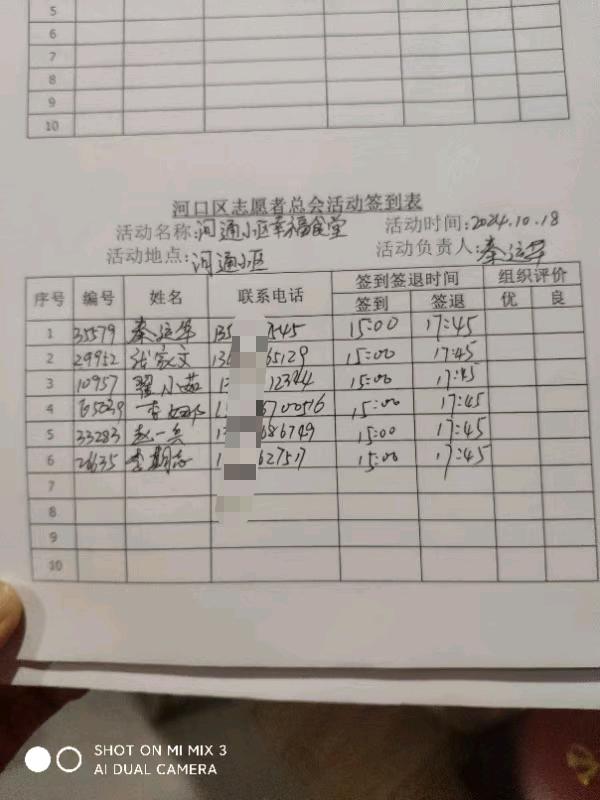 5
6
7
8
9
10
河口区志愿者总会活动签到表
活动名称:河通小区幸福食堂 活动时间:2024.10.18
活动地点:河通小区 活动负责人:秦运华
序号 编号 姓名 联系电话 签到签退时间 组织评价
签到 签退 优 良
1 35579 秦运华 135 545 15:00 17:45
2 29952 张家文 136 65129 15:00 17:45
3 10957 翟小茹 1 12344 15:00 17:45
4 65039 1 6700516 15:00 17:45
5 33283 赵一兵 1 686749 15:00 17:45
6 26635 1 627517 15:00 17:45
7
8
9
10
SHOT ON MI MIX 3
AI DUAL CAMERA